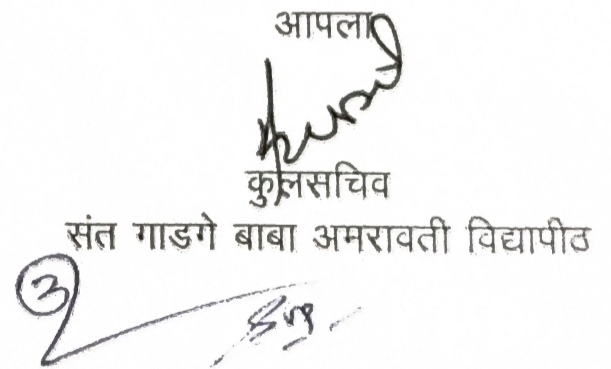 आपला
कुलसचिव
संत गाडगे बाबा अमरावती विद्यापीठ